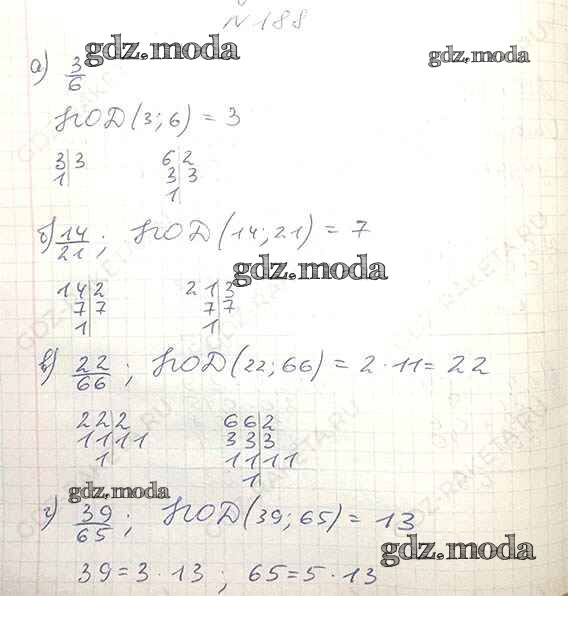 №188
gdz.moda
gdz.moda
а) 3/6
НОД(3;6) = 3
3|3 6|2
1| 3|3
1
б) 14/21; НОД(14;21) = 7
gdz.moda
14|2 21|3
7|7 7|7
1| 1|
в) 22/66; НОД(22;66) = 2·11 = 22
22|2 66|2
11|11 33|3
1| 11|11
1|
gdz.moda
г) 39/65; НОД(39;65) = 13
gdz.moda
39=3·13; 65=5·13
GDZ-RAKETA.RU